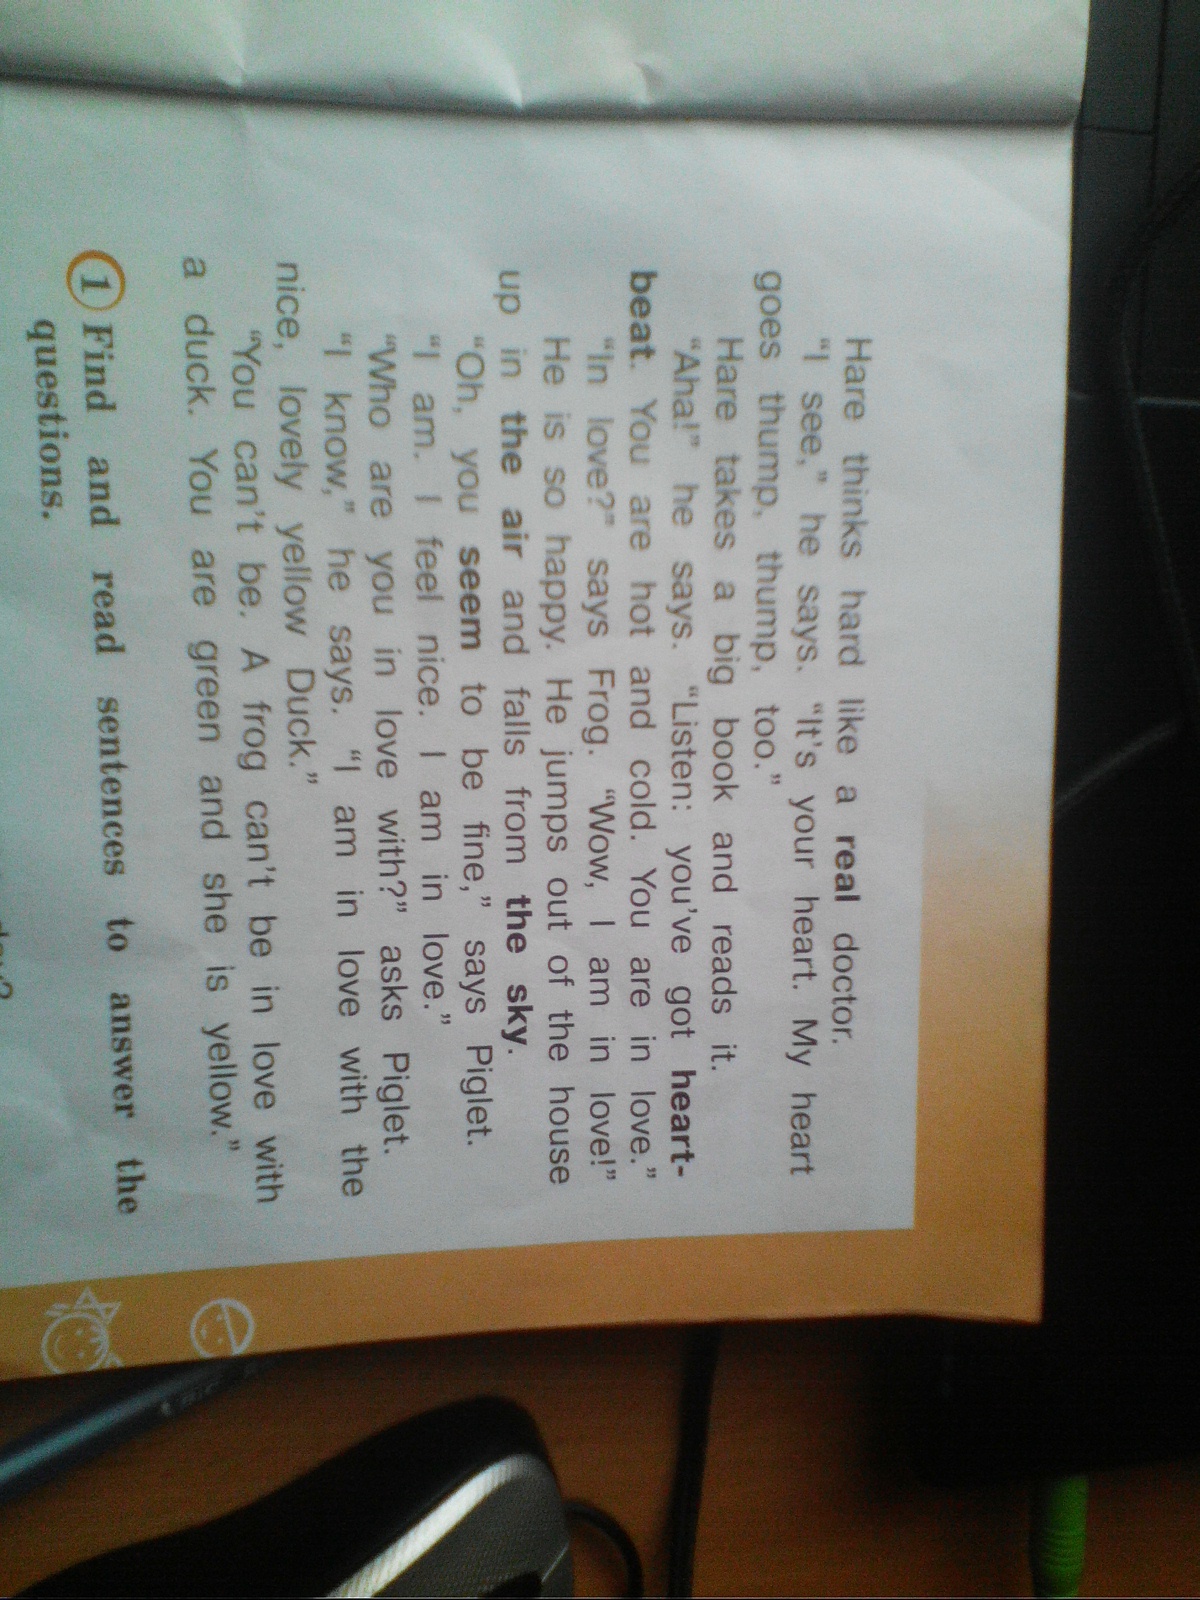 Hare thinks hard like a real doctor.
"I see," he says. "It's your heart. My heart
goes thump, thump, thump, too."
Hare takes a big book and reads it.
"Aha!" he says. "Listen: you've got heart-
beat. You are hot and cold. You are in love."
"In love?" says Frog. "Wow, I am in love!"
He is so happy. He jumps out of the house
up in the air and falls from the sky.
"Oh, you seem to be fine," says Piglet.
"I am. I feel nice. I am in love."
"Who are you in love with?" asks Piglet.
"I know," he says. "I am in love with the
nice, lovely yellow Duck."
"You can't be. A frog can't be in love with
a duck. You are green and she is yellow."
1 Find and read sentences to answer the
questions.